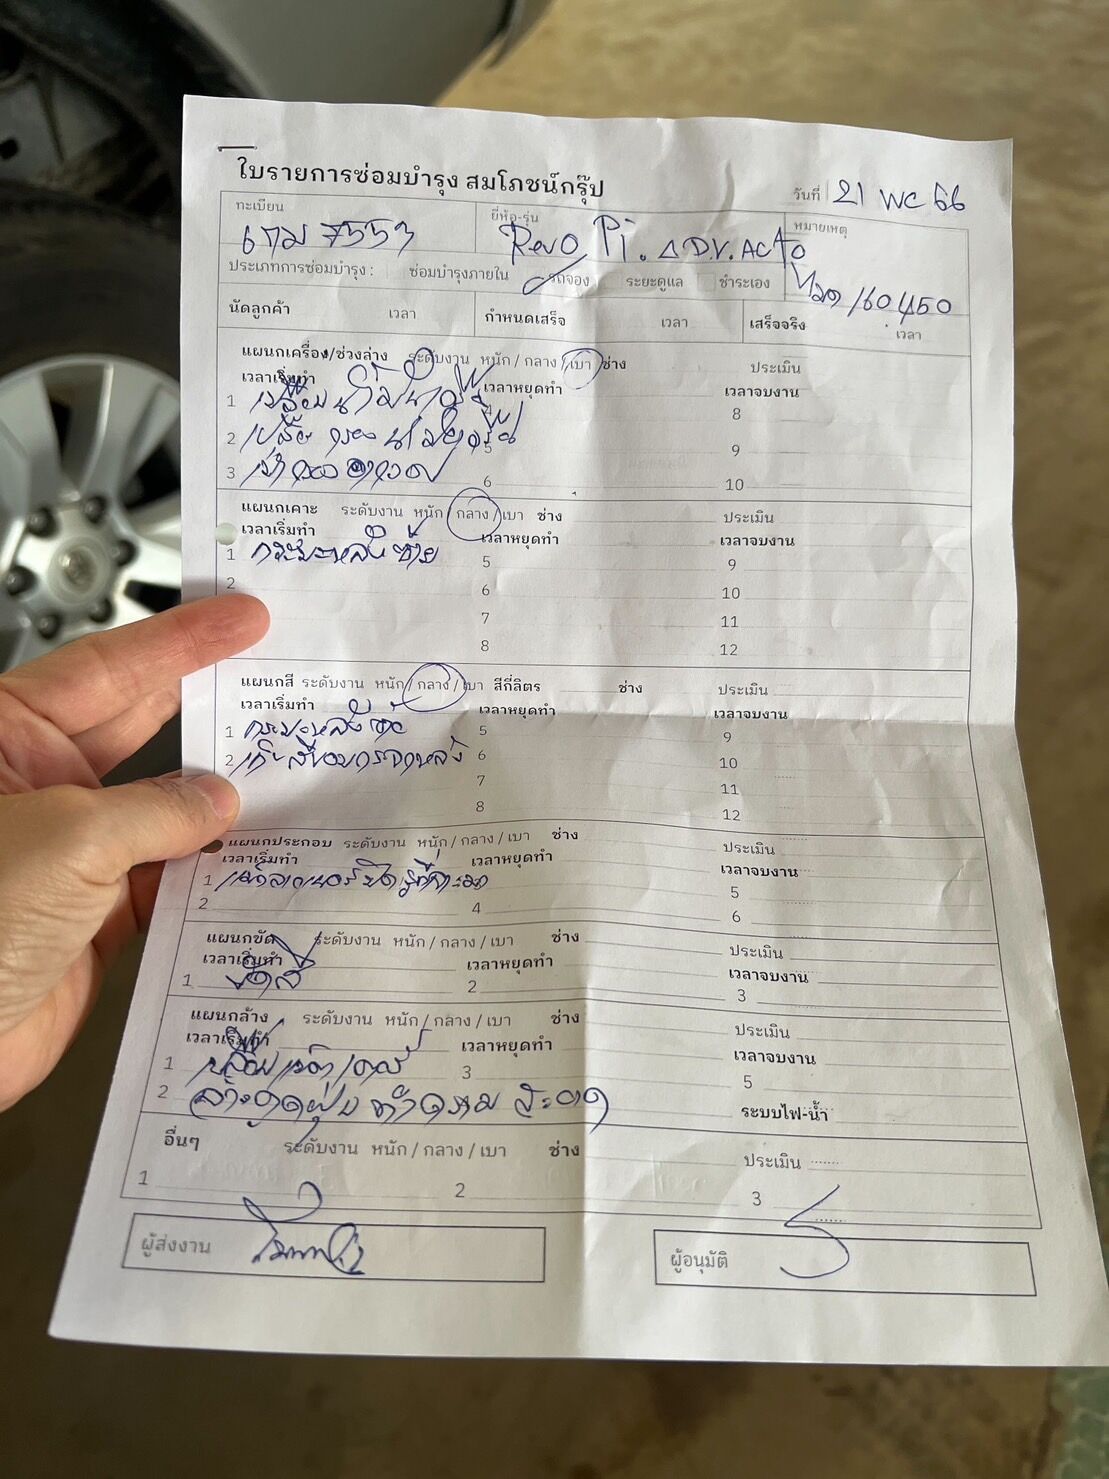 ใบรายการซ่อมบำรุง สมโภชน์กรุ๊ป
วันที่ 21 พค 66
ทะเบียน ยี่ห้อ-รุ่น หมายเหตุ
6กม 7553 Revo
ประเภทการซ่อมบำรุง : ซ่อมบำรุงภายใน รถจอง ระยะดูแล ชำระเอง
ไมล 160450
นัดลูกค้า เวลา กำหนดเสร็จ เวลา เสร็จจริง เวลา
แผนกเครื่อง/ช่วงล่าง ระดับงาน หนัก / กลาง / เบา ช่าง ประเมิน
เวลาเริ่มทำ เวลาหยุดทำ เวลาจบงาน
1 4 8
2 เปลี่ยน กรอง 5 9
3 เป่ากรองอากาศ 6 10
แผนกเคาะ ระดับงาน หนัก / กลาง / เบา ช่าง ประเมิน
เวลาเริ่มทำ เวลาหยุดทำ เวลาจบงาน
1 กระบะหลังซ้าย 5 9
2 6 10
7 11
8 12
แผนกสี ระดับงาน หนัก / กลาง / เบา สีกี่ลิตร ช่าง ประเมิน
เวลาเริ่มทำ เวลาหยุดทำ เวลาจบงาน
1 กระบะหลังซ้าย 5 9
2 เก็บสีขอบกระจกหลัง 6 10
7 11
8 12
แผนกประกอบ ระดับงาน หนัก / กลาง / เบา ช่าง ประเมิน
เวลาเริ่มทำ เวลาหยุดทำ เวลาจบงาน
1 5
2 4 6
แผนกขัด ระดับงาน หนัก / กลาง / เบา ช่าง ประเมิน
เวลาเริ่มทำ เวลาหยุดทำ เวลาจบงาน
1 ขัดสี 2 3
แผนกล้าง ระดับงาน หนัก / กลาง / เบา ช่าง ประเมิน
เวลาเริ่มทำ เวลาหยุดทำ เวลาจบงาน
1 3 5
2 ล้างดูดฝุ่น ทำความ สะอาด ระบบไฟ-น้ำ
อื่นๆ ระดับงาน หนัก / กลาง / เบา ช่าง ประเมิน
1 2 3
ผู้ส่งงาน ผู้อนุมัติ